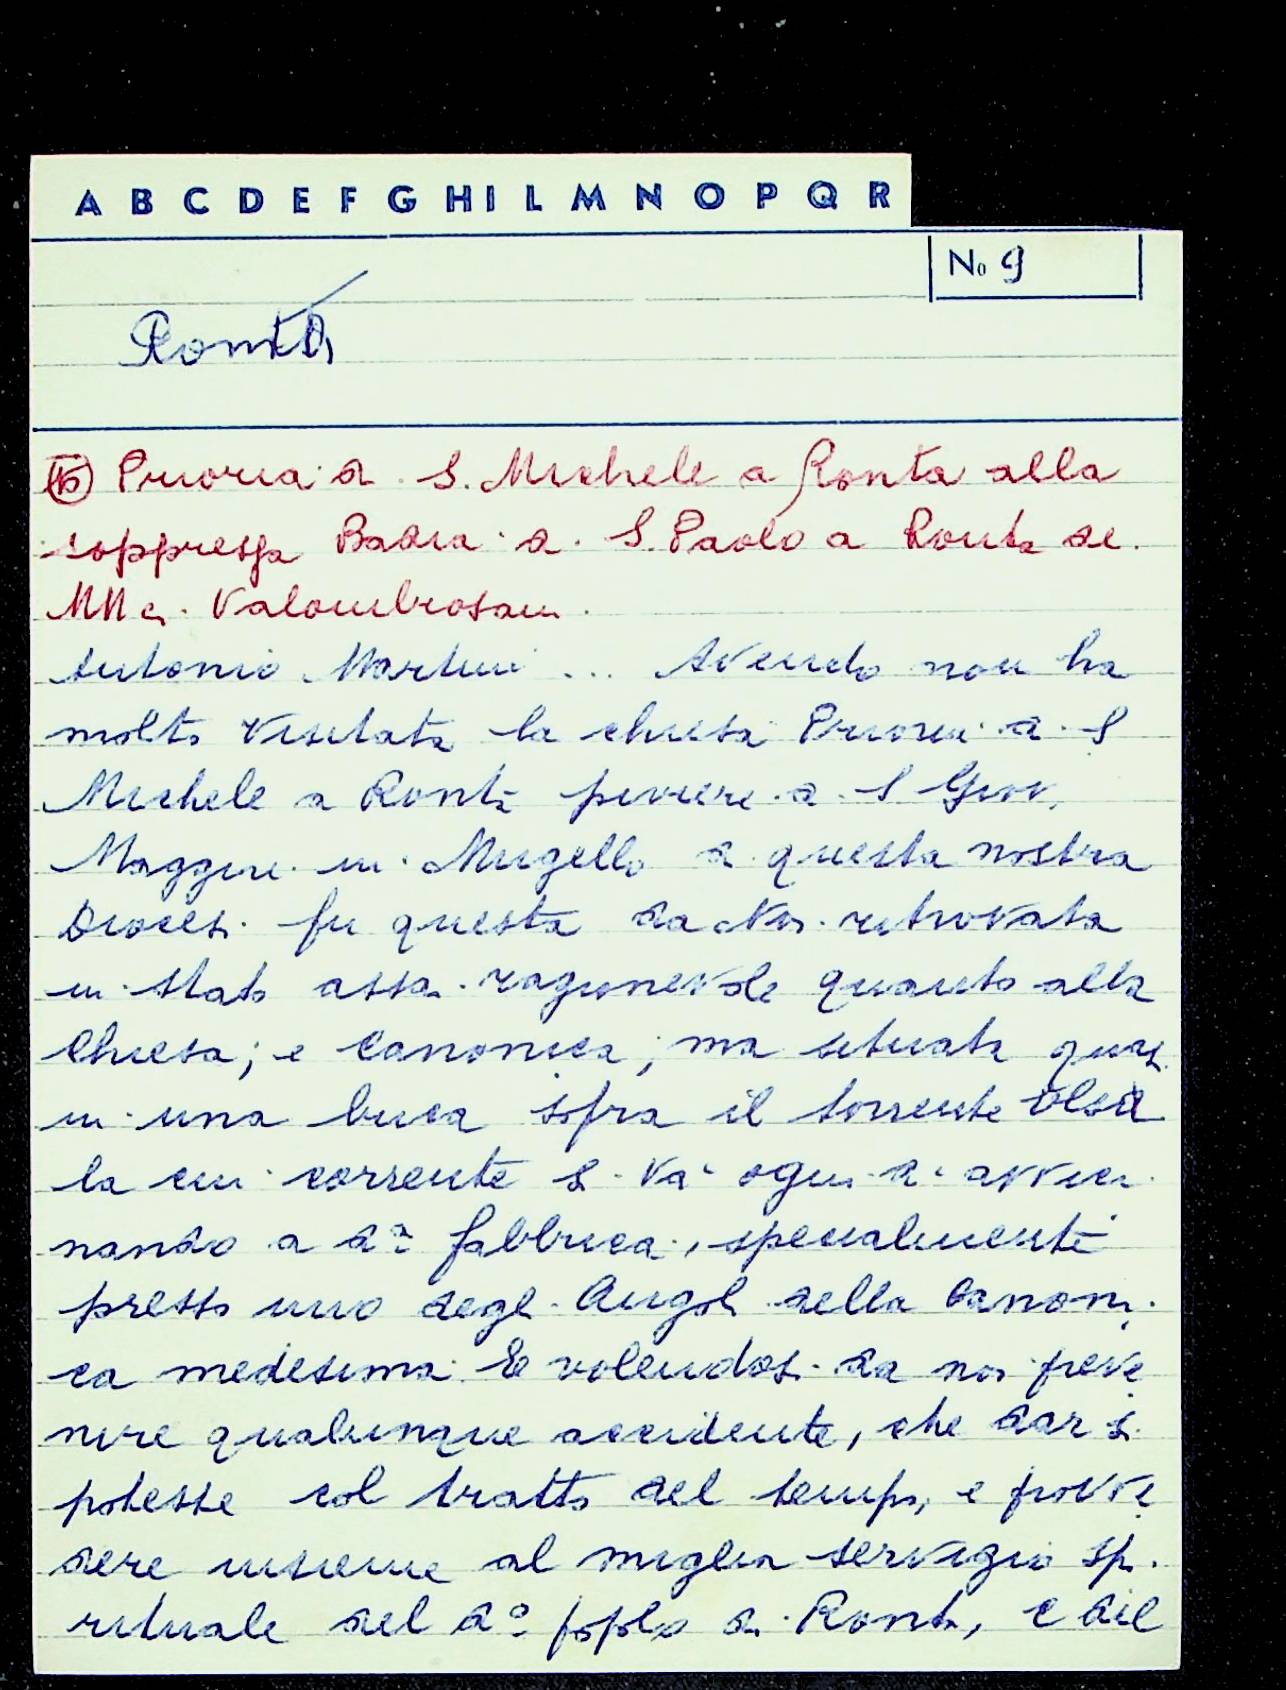 A B C D E F G H I L M N O P Q R
No 9
Ronta
Prioria di S. Michele a Ronta alla
soppressa Badia di S. Paolo a Ronta dei
MM ci Valombrosani
Antonio Martini ... Avendo non ha
molto visitata la chiesa Prioria di S
Michele a Ronta piviere di S Giov.
Maggiore in Mugello di questa nostra
Diocesi fu questa da Noi ritrovata
in stato assai ragionevole quanto alla
Chiesa; e Canonica; ma situata quasi
in una buca sopra il torrente Elsa
la cui corrente si va ogni dì avvici
nando a da fabbrica, specialmente
presso uno degli Angoli della Canoni
ca medesima. E volendosi da noi preve
nire qualunque accidente, che dar si
potesse col tratto del tempo, e provve
dere insieme al miglior servizio spi
rituale del do popolo di Ronta, e del